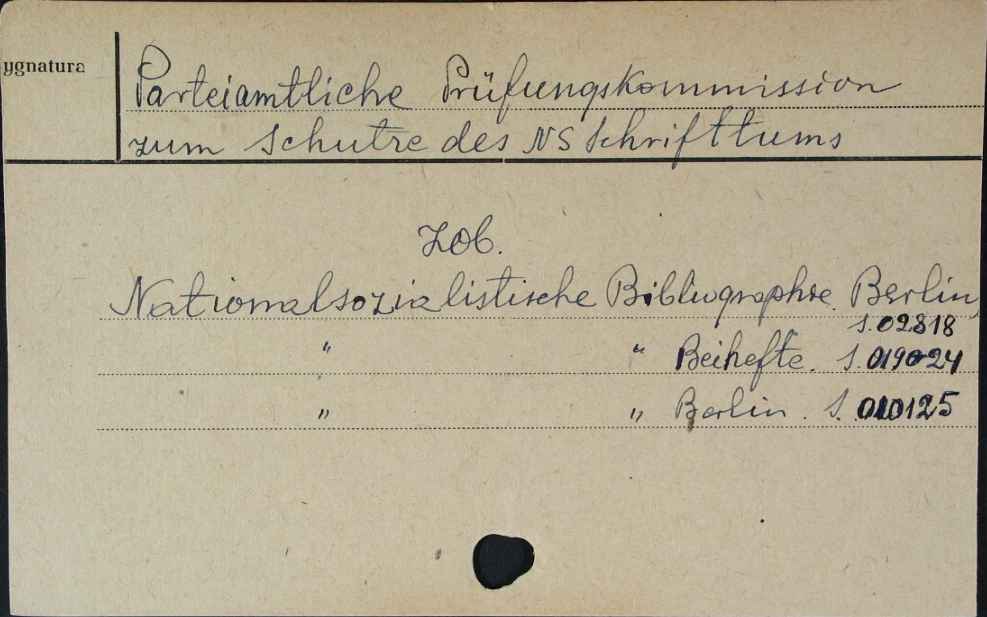 ygnatura
Parteiamtliche Prüfungskommission
zum Schutze des NS Schrifttums
Zob.
Nationalsozialistische Bibliographie Berlin,
S. 02818
" " Beihefte. S. 019024
" " Berlin. S. 010125